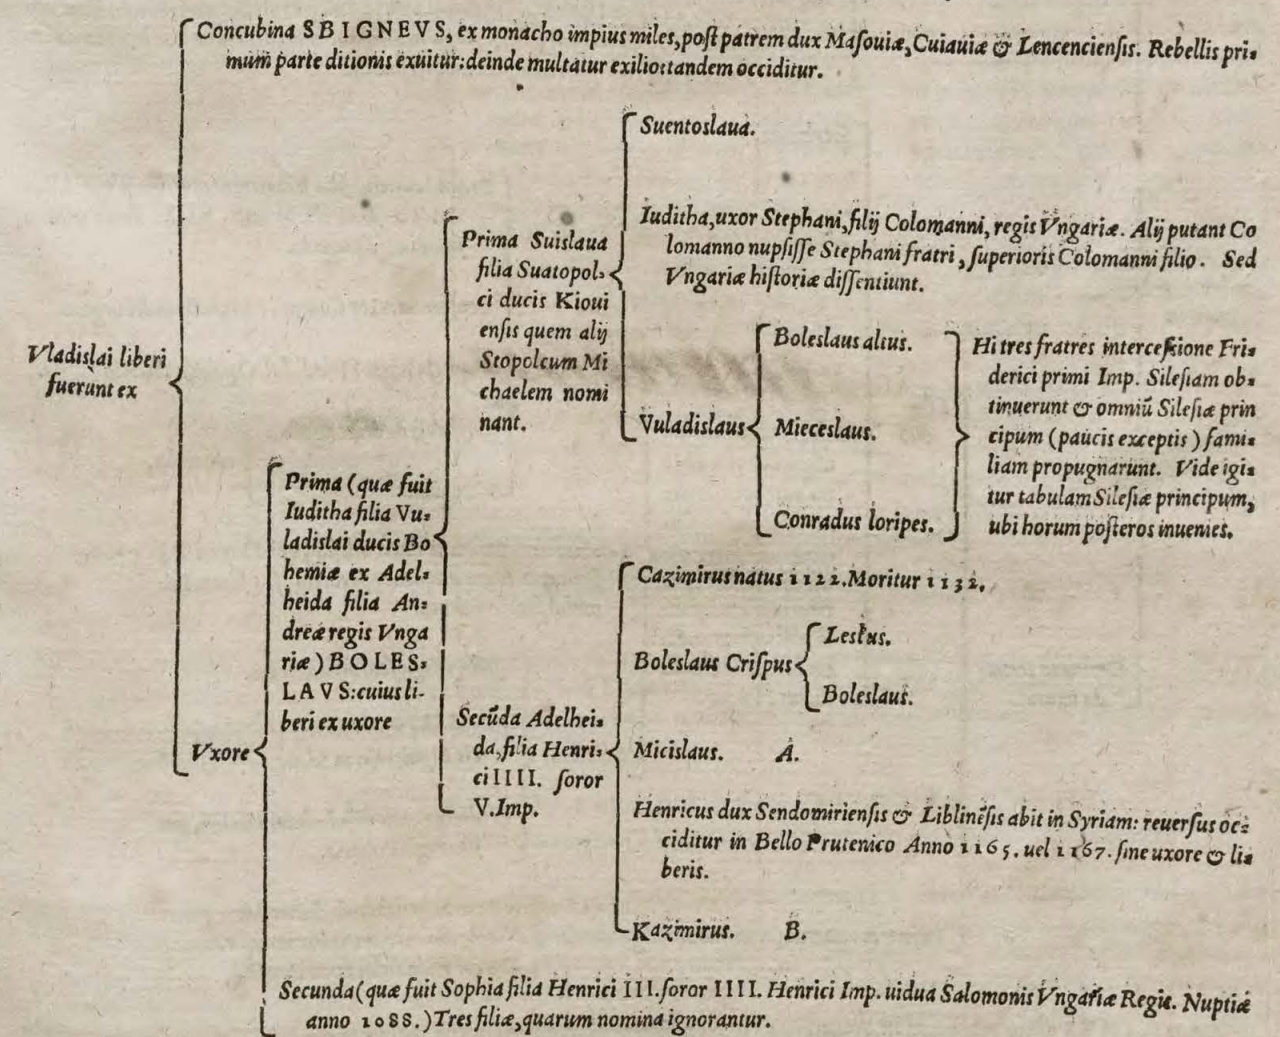 Concubina SBIGNEVS, ex monacho impius miles, post patrem dux Masouiæ, Cuiauiæ & Lencenciensis. Rebellis pri-
mum parte ditionis exuitur: deinde multatur exilio: tandem occiditur.
Vladislai liberi
fuerunt ex
Vxore
Prima (quæ fuit
Iuditha filia Vu-
ladislai ducis Bo
hemiæ ex Adel-
heida filia An-
dreæ regis Vnga
riæ) BOLES-
LAVS: cuius li-
beri ex uxore
Prima Suislaua
filia Suatopol-
ci ducis Kioui
ensis quem alij
Stopolcum Mi
chaelem nomi
nant.
Suentoslaua.
Iuditha, uxor Stephani, filij Colomanni, regis Vngariæ. Alij putant Co
lomanno nupsisse Stephani fratri, superioris Colomanni filio. Sed
Vngariæ historiæ dissentiunt.
Vuladislaus
Boleslaus altus.
Mieceslaus.
Conradus loripes.
Hi tres fratres intercessione Fri-
derici primi Imp. Silesiam ob-
tinuerunt & omniũ Silesiæ prin
cipum (paucis exceptis) fami-
liam propugnarunt. Vide igi-
tur tabulam Silesiæ principum,
ubi horum posteros inuenies.
Secũda Adelhei-
da, filia Henri-
ci IIII. soror
V. Imp.
Cazimirus natus 1122. Moritur 1132.
Boleslaus Crispus
Lestus.
Boleslaus.
Micislaus. A.
Henricus dux Sendomiriensis & Liblinẽsis abit in Syriam: reuersus oc-
ciditur in Bello Prutenico Anno 1165. uel 1167. sine uxore & li-
beris.
Kazimirus. B.
Secunda (quæ fuit Sophia filia Henrici III. soror IIII. Henrici Imp. uidua Salomonis Vngariæ Regis. Nuptiæ
anno 1088.) Tres filiæ, quarum nomina ignorantur.